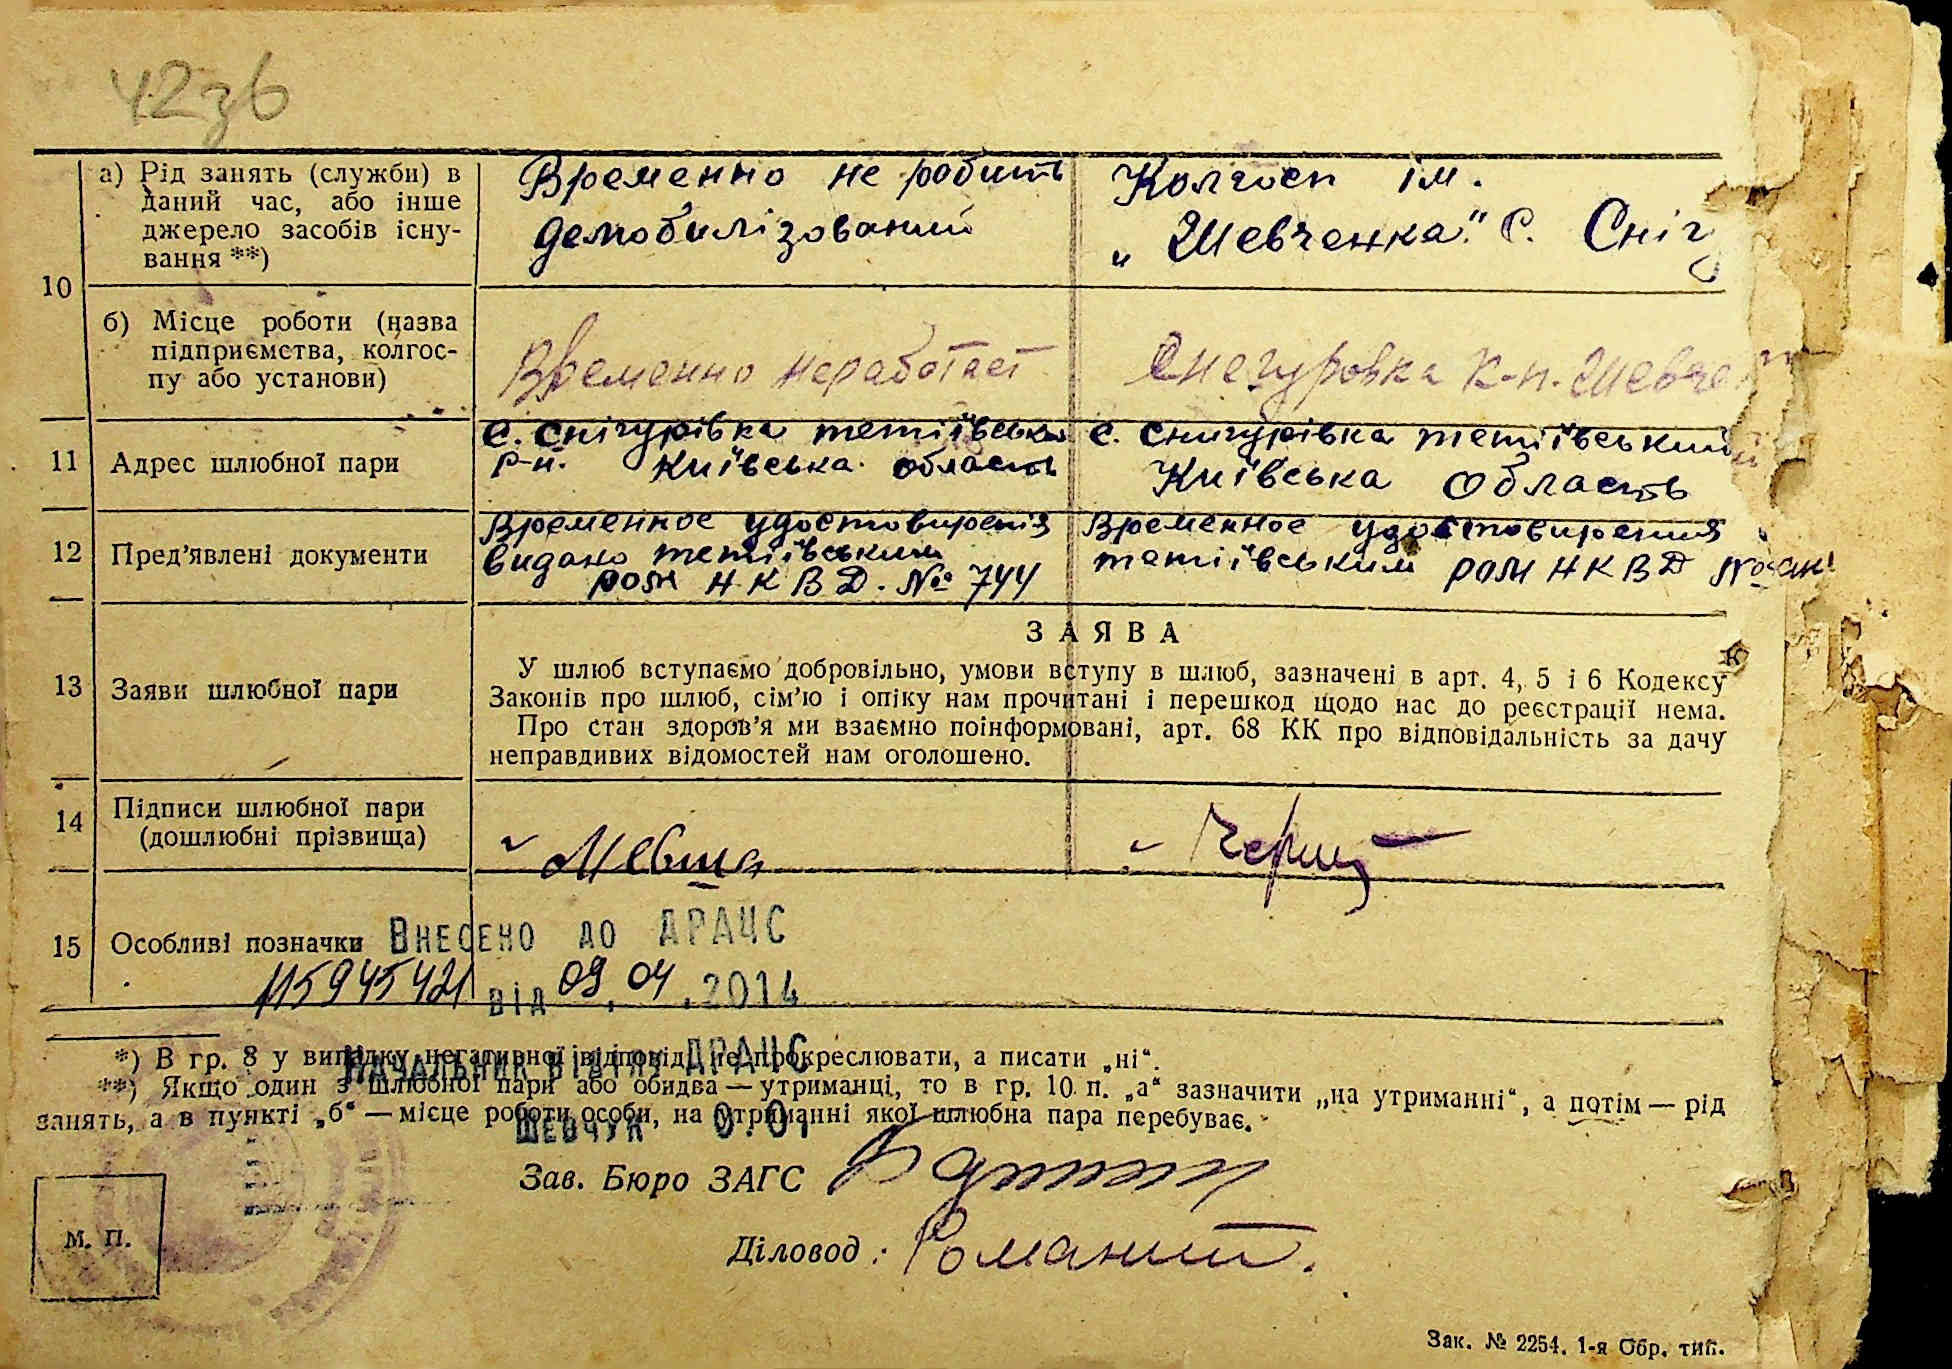 42зв
10
а) Рід занять (служби) в
даний час, або інше
джерело засобів існу-
вання **)
Временно не робить
демобилізований
Колгосп ім.
„Шевченка." С. Сніг
б) Місце роботи (назва
підприємства, колгос-
пу або установи)
Временно неработает
Снегуровка к-п. Шевче
11 Адрес шлюбної пари
с. Снігурівка тетіївський
р-н. Київська область
с. Снигурівка тетіївський
Київська Область
12 Пред’явлені документи
Временное удостовиренія
видано тетіївським
ром Н К В Д. № 744
Временное удостовирения
тетіївським ром Н К В Д №
13 Заяви шлюбної пари
ЗАЯВА
У шлюб вступаємо добровільно, умови вступу в шлюб, зазначені в арт. 4, 5 і 6 Кодексу
Законів про шлюб, сім’ю і опіку нам прочитані і перешкод щодо нас до реєстрації нема.
Про стан здоров’я ми взаємно поінформовані, арт. 68 КК про відповідальність за дачу
неправдивих відомостей нам оголошено.
14 Підписи шлюбної пари
(дошлюбні прізвища)
15 Особливі позначки
Внесено до ДРАЦС
115945421 від 09.04.2014
Начальник відділу ДРАЦС
Шевчук О.О.
*) В гр. 8 у випадку негативної відповіді не прокреслювати, а писати „ні“.
**) Якщо один з шлюбної пари або обидва — утриманці, то в гр. 10 п. „а“ зазначити „на утриманні“, а потім — рід
занять, а в пункті „б“ — місце роботи особи, на утриманні якої шлюбна пара перебуває.
Зав. Бюро ЗАГС
Діловод :
М. П.
Зак. № 2254. 1-я Обр. тип.